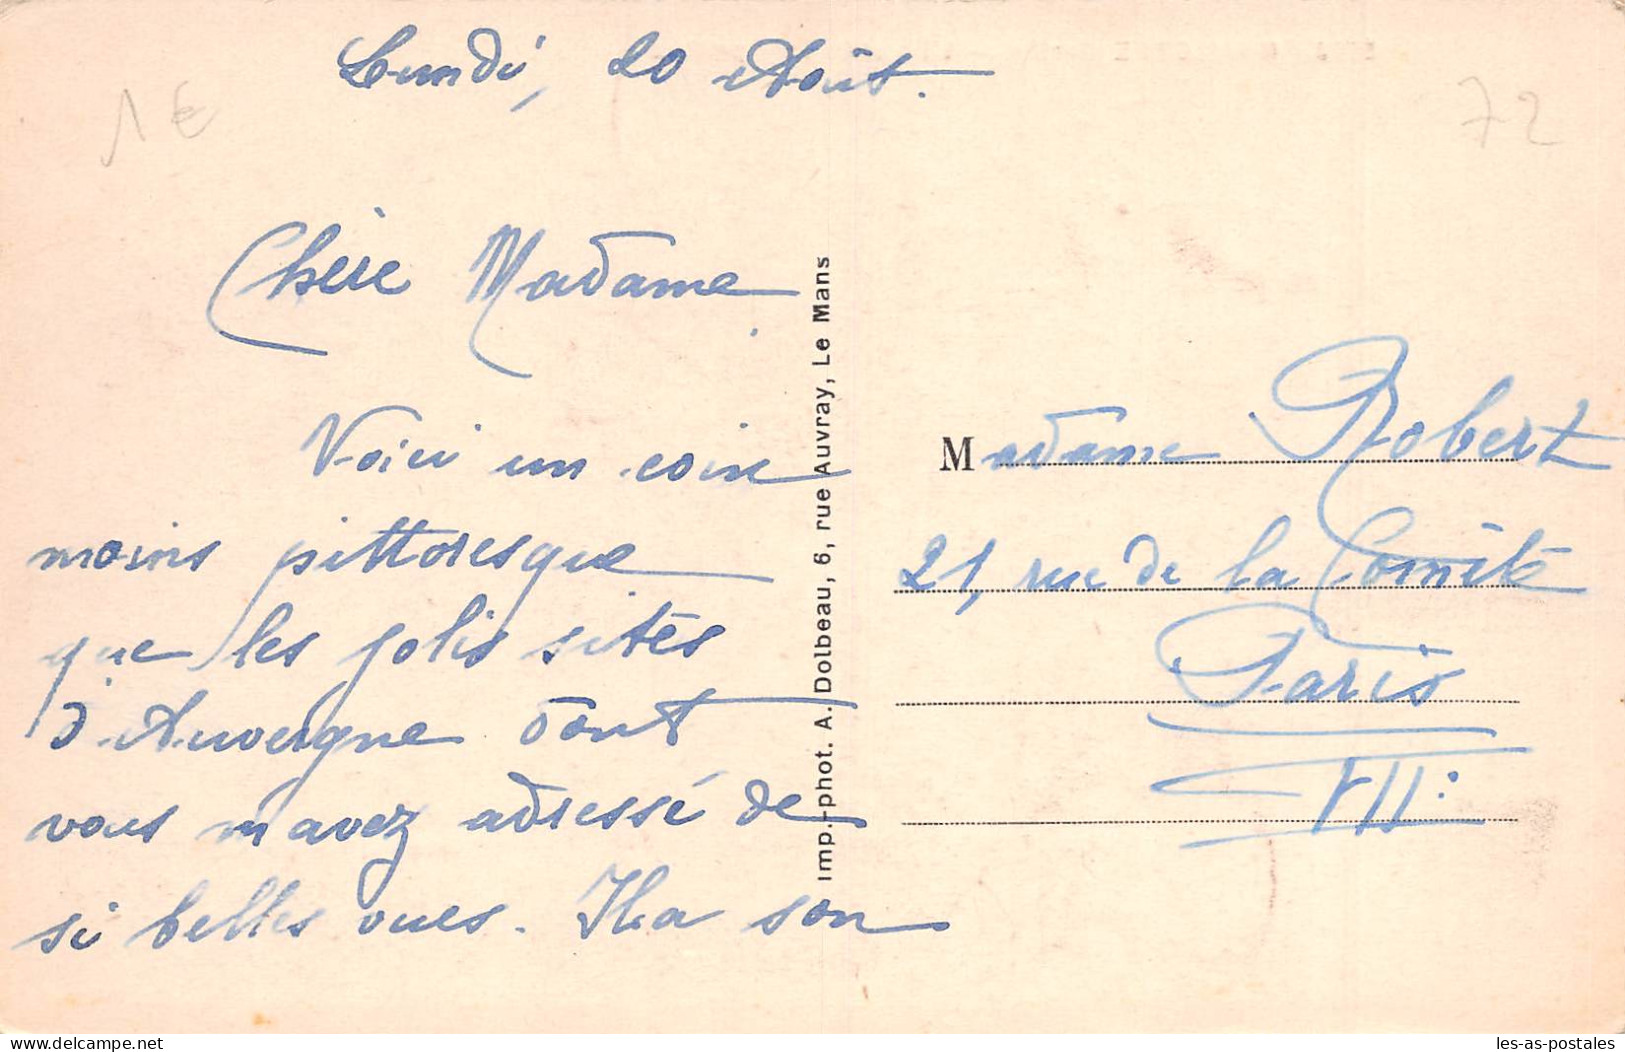 Lundi, 20 Août.
1 €
72
Chère Madame
Voici un coin
moins pittoresque
que les jolis sites
d'Auvergne dont
vous m'avez adressé de
si belles vues. Il a son
Imp.-phot. A. Dolbeau, 6, rue Auvray, Le Mans
Madame Robert
21, rue de la Comète
Paris
VII:
delcampe.net
les-as-postales